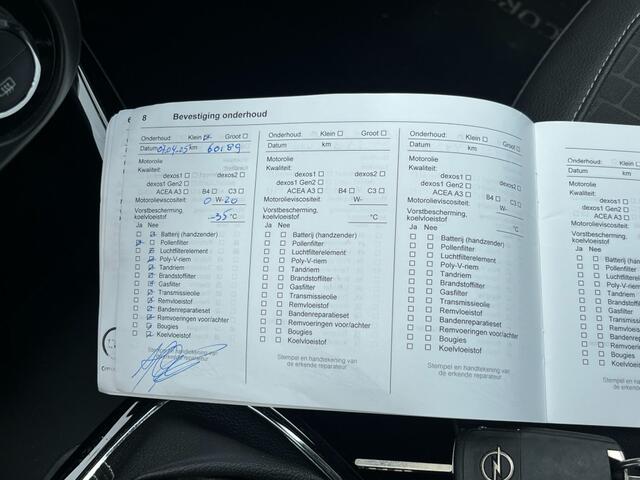 8 Bevestiging onderhoud
Onderhoud: Klein ☑ Groot ☐
Datum 07.04.25 km 60189
Motorolie
Kwaliteit:
dexos1 ☐ dexos2 ☐
dexos1 Gen2 ☐
ACEA A3 ☐ B4 ☐ C3 ☐
Motorolieviscositeit: 0 W-20
Vorstbescherming,
koelvloeistof -35 °C
Ja Nee
☐ ☑ Batterij (handzender)
☑ ☐ Pollenfilter
☐ ☑ Luchtfilterelement
☐ ☑ Poly-V-riem
☐ ☑ Tandriem
☐ ☑ Brandstoffilter
☐ ☑ Gasfilter
☐ ☑ Transmissieolie
☐ ☑ Remvloeistof
☐ ☑ Bandenreparatieset
☐ ☑ Remvoeringen voor/achter
☐ ☑ Bougies
☐ ☑ Koelvloeistof
Stempel en handtekening van
de erkende reparateur
Onderhoud: Klein ☐ Groot ☐
Datum km
Motorolie
Kwaliteit:
dexos1 ☐ dexos2 ☐
dexos1 Gen2 ☐
ACEA A3 ☐ B4 ☐ C3 ☐
Motorolieviscositeit: W-
Vorstbescherming,
koelvloeistof °C
Ja Nee
☐ ☐ Batterij (handzender)
☐ ☐ Pollenfilter
☐ ☐ Luchtfilterelement
☐ ☐ Poly-V-riem
☐ ☐ Tandriem
☐ ☐ Brandstoffilter
☐ ☐ Gasfilter
☐ ☐ Transmissieolie
☐ ☐ Remvloeistof
☐ ☐ Bandenreparatieset
☐ ☐ Remvoeringen voor/achter
☐ ☐ Bougies
☐ ☐ Koelvloeistof
Stempel en handtekening van
de erkende reparateur
Onderhoud: Klein ☐ Groot ☐
Datum km
Motorolie
Kwaliteit:
dexos1 ☐ dexos2 ☐
dexos1 Gen2 ☐
ACEA A3 ☐ B4 ☐ C3 ☐
Motorolieviscositeit: W-
Vorstbescherming,
koelvloeistof °C
Ja Nee
☐ ☐ Batterij (handzender)
☐ ☐ Pollenfilter
☐ ☐ Luchtfilterelement
☐ ☐ Poly-V-riem
☐ ☐ Tandriem
☐ ☐ Brandstoffilter
☐ ☐ Gasfilter
☐ ☐ Transmissieolie
☐ ☐ Remvloeistof
☐ ☐ Bandenreparatieset
☐ ☐ Remvoeringen voor/achter
☐ ☐ Bougies
☐ ☐ Koelvloeistof
Stempel en handtekening van
de erkende reparateur
Onderhoud:
Datum
Motorolie
Kwaliteit:
dexos1
dexos1 Gen2
ACEA A3
Motorolieviscositeit:
Vorstbescherming,
koelvloeistof
Ja Nee
☐ ☐ Batterij
☐ ☐ Pollenfilter
☐ ☐ Luchtfilterelement
☐ ☐ Poly-V-riem
☐ ☐ Tandriem
☐ ☐ Brandstoffilter
☐ ☐ Gasfilter
☐ ☐ Transmissieolie
☐ ☐ Remvloeistof
☐ ☐ Bandenreparatieset
☐ ☐ Remvoeringen
☐ ☐ Bougies
☐ ☐ Koelvloeistof
Stempel en
de erkende